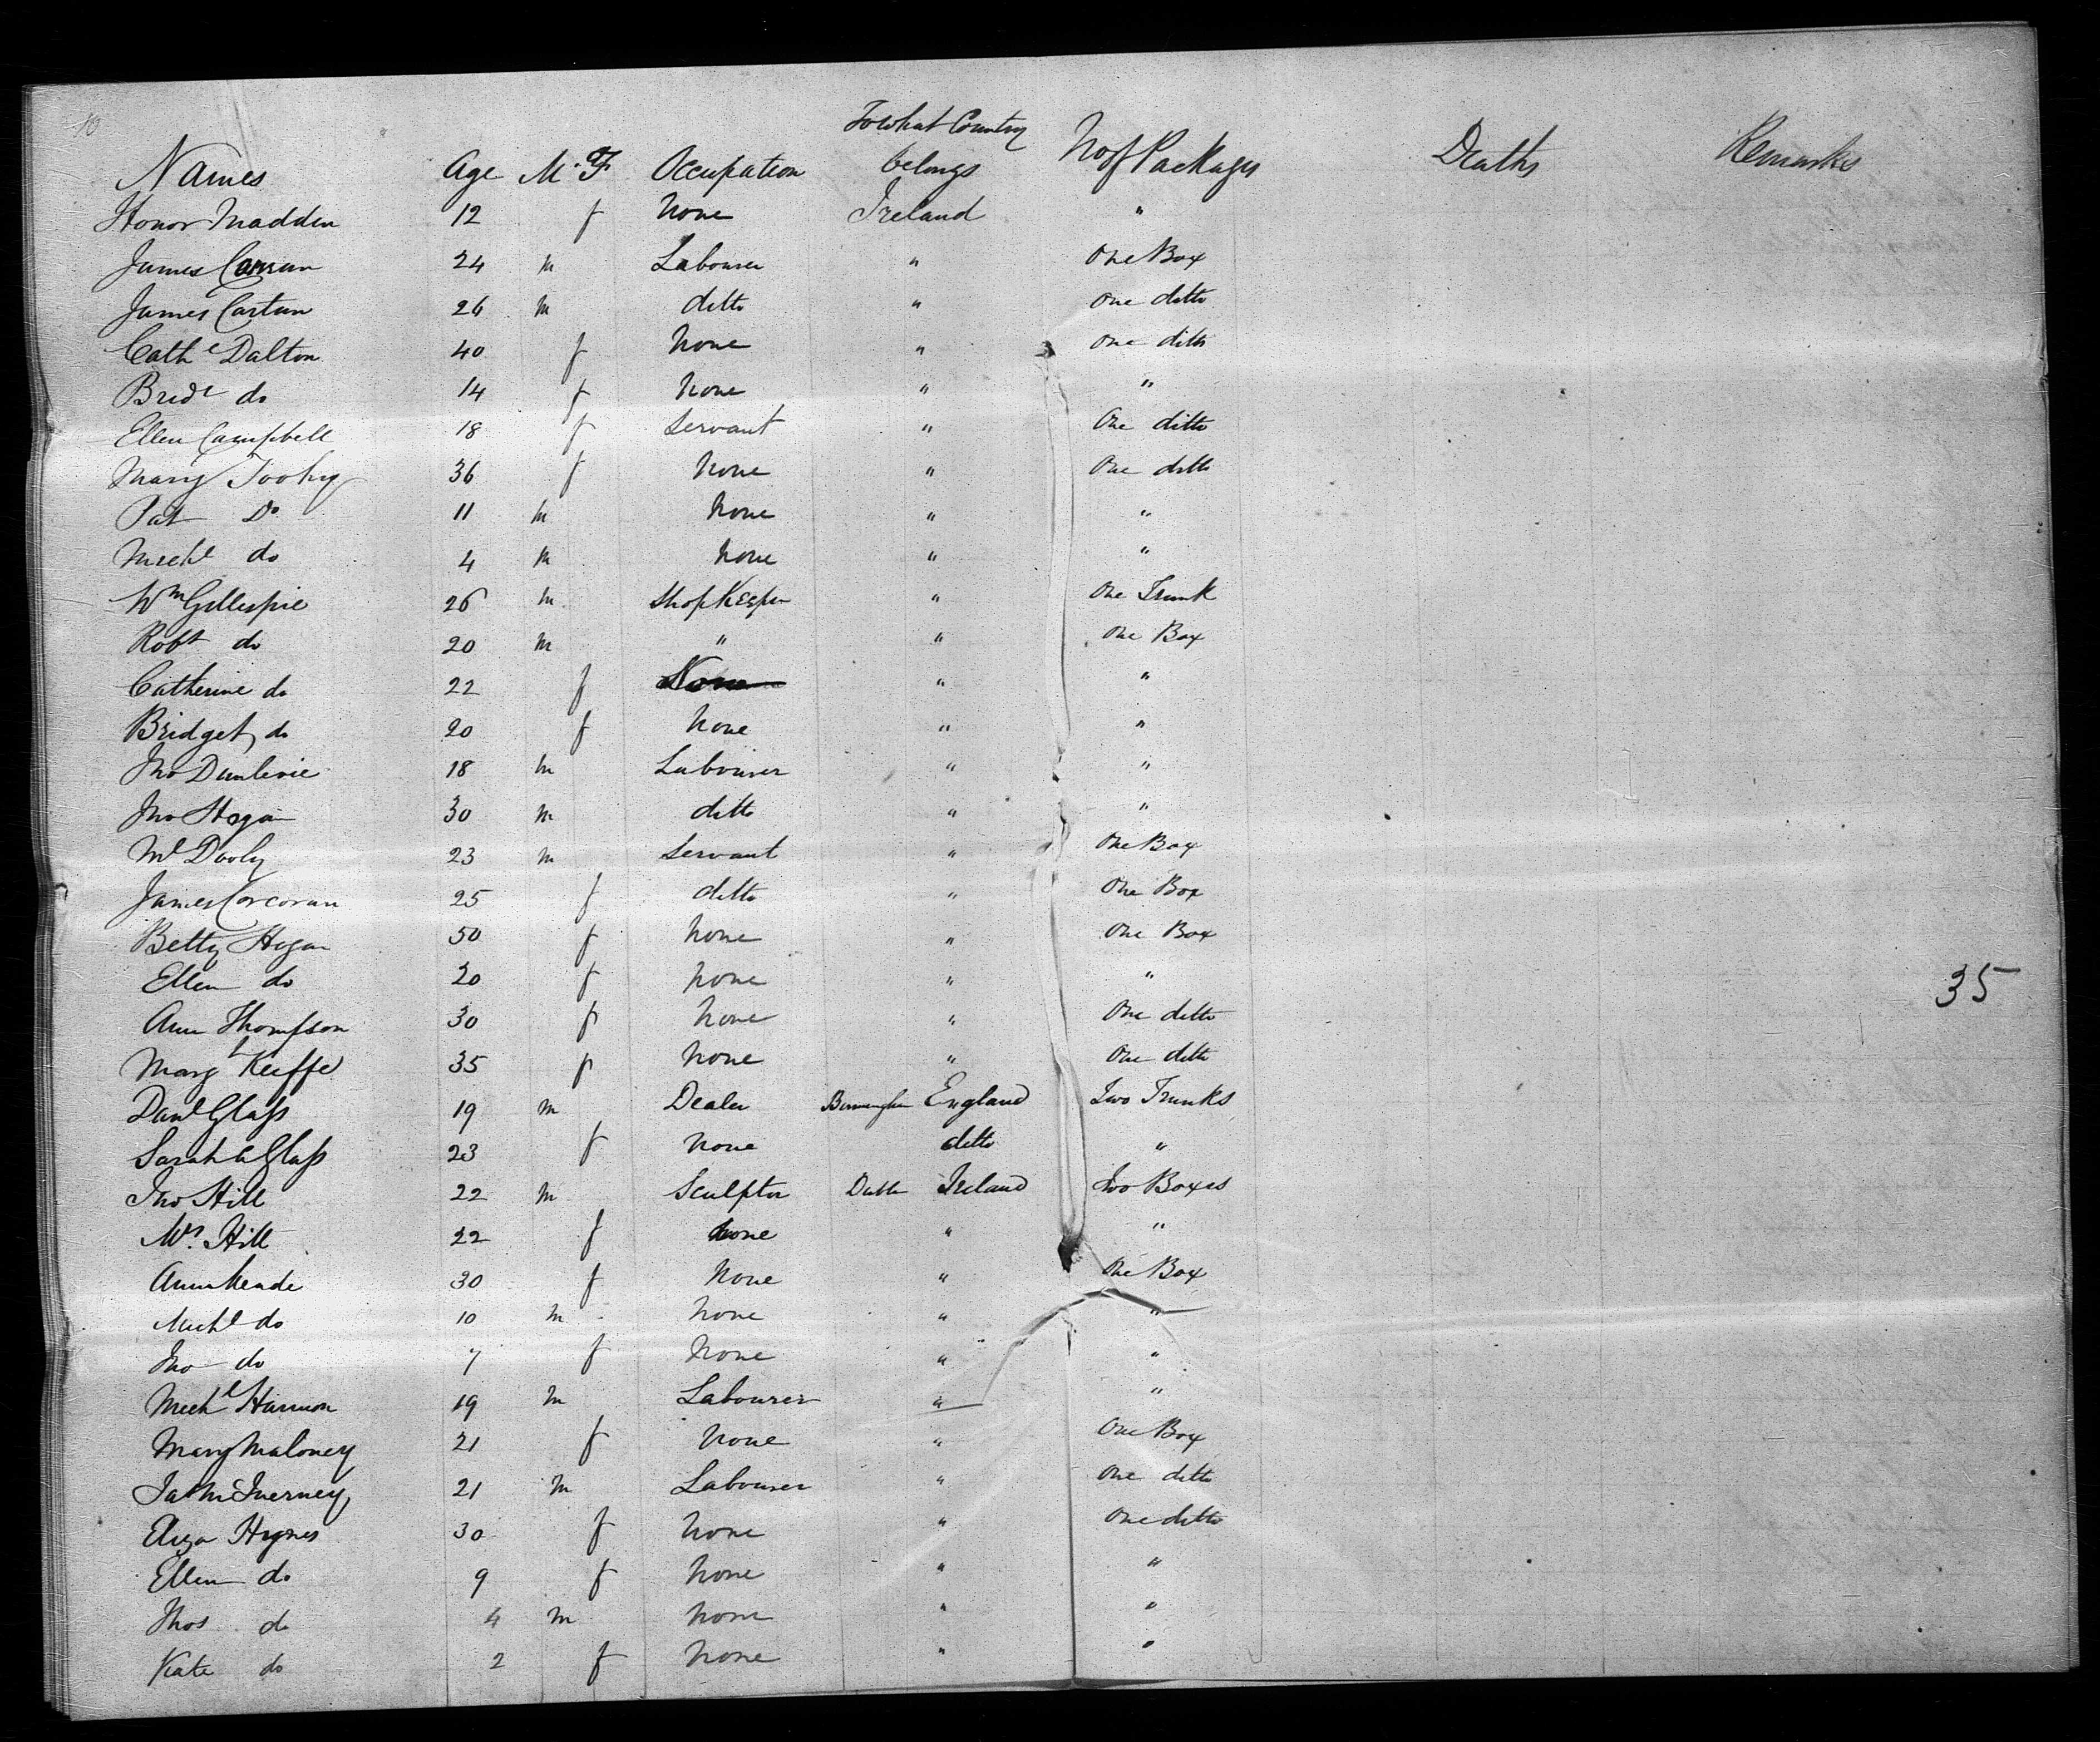 10
Names Age M. F Occupation To what Country belongs No of Packages Deaths Remarks
Honor Madden 12 f None Ireland "
James Curran 24 m Labourer " One Box
James Cartan 26 m ditto " One ditto
Cathe Dalton 40 f None " One ditto
Bridt do 14 f None " "
Ellen Campbell 18 f Servant " One ditto
Mary Toohy 36 f None " One ditto
Pat Do 11 m None " "
Michl do 4 m None " "
Wm Gillespie 26 m ShopKeeper " One Trunk
Robt do 20 m " " One Box
Catherine do 22 f None " "
Bridget do 20 f None " "
Jno Dunlevie 18 m Labourer " "
Jno Hogan 30 m ditto " "
Ml Dooly 23 m Servant " One Box
James Corcoran 25 f ditto " One Box
Betty Hogan 50 f None " One Box
Ellen do 20 f None " "
Ann Thompson 30 f None " One ditto
35
Margt Keiffe 35 f None " One ditto
Danl Glass 19 m Dealer Birmingham England Two Trunks
Sarah Glass 23 f None ditto "
Jno Hill 22 m Sculptor Dublin Ireland Two Boxes
Mrs. Hill 22 f None " "
Ann Keade 30 f None " One Box
Michl do 10 m None " "
Jno do 7 f None " "
Michl Harmon 19 m Labourer " "
Mary Maloney 21 f None " One Box
Jas McInerney 21 m Labourer " One ditto
Eliza Hynes 30 f None " One ditto
Ellen do 9 f None " "
Thos do 4 m None " "
Kate do 2 f None " "